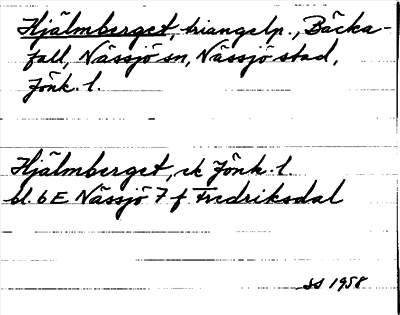 Hjälmberget, triangelp., Bäcka-
fall, Nässjö sn, Nässjö stad,
Jönk. l.
Hjälmberget, ek Jönk. l.
bl. 6 E Nässjö 7 f Fredriksdal
SS 1958